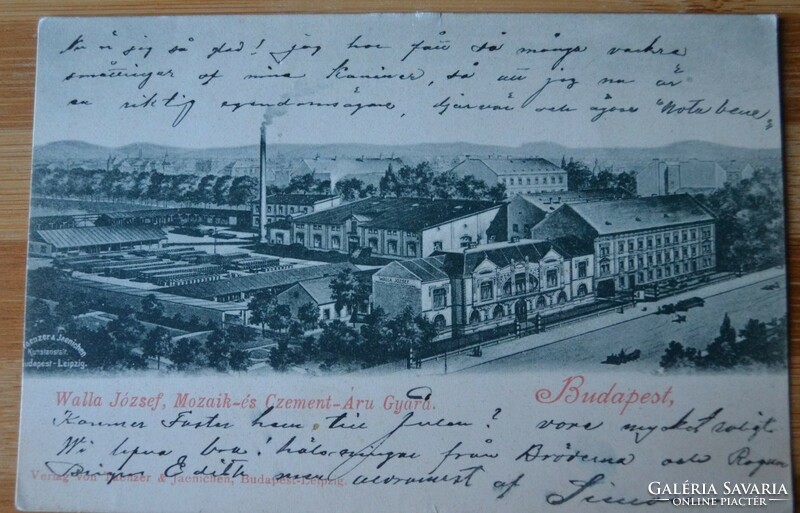 Nu är jag så glad! jag har fått så många vackra
af mina Kaniner, så att jag nu är
en riktig egendomsägare, och äger "Nota bene"
WALLA JÓZSEF
Taenzer & Jaenichen
Kunstanstalt
Budapest-Leipzig.
Walla József, Mozaik-és Czement-Áru Gyára. Budapest,
Kommer Faster hem till Julen? vore mycket roligt.
Wi lefva bra! hälsningar från Bröderna och
Edith men aldramest af
Verlag von Taenzer & Jaenichen, Budapest-Leipzig.
GALÉRIA SAVARIA
ONLINE PIACTÉR